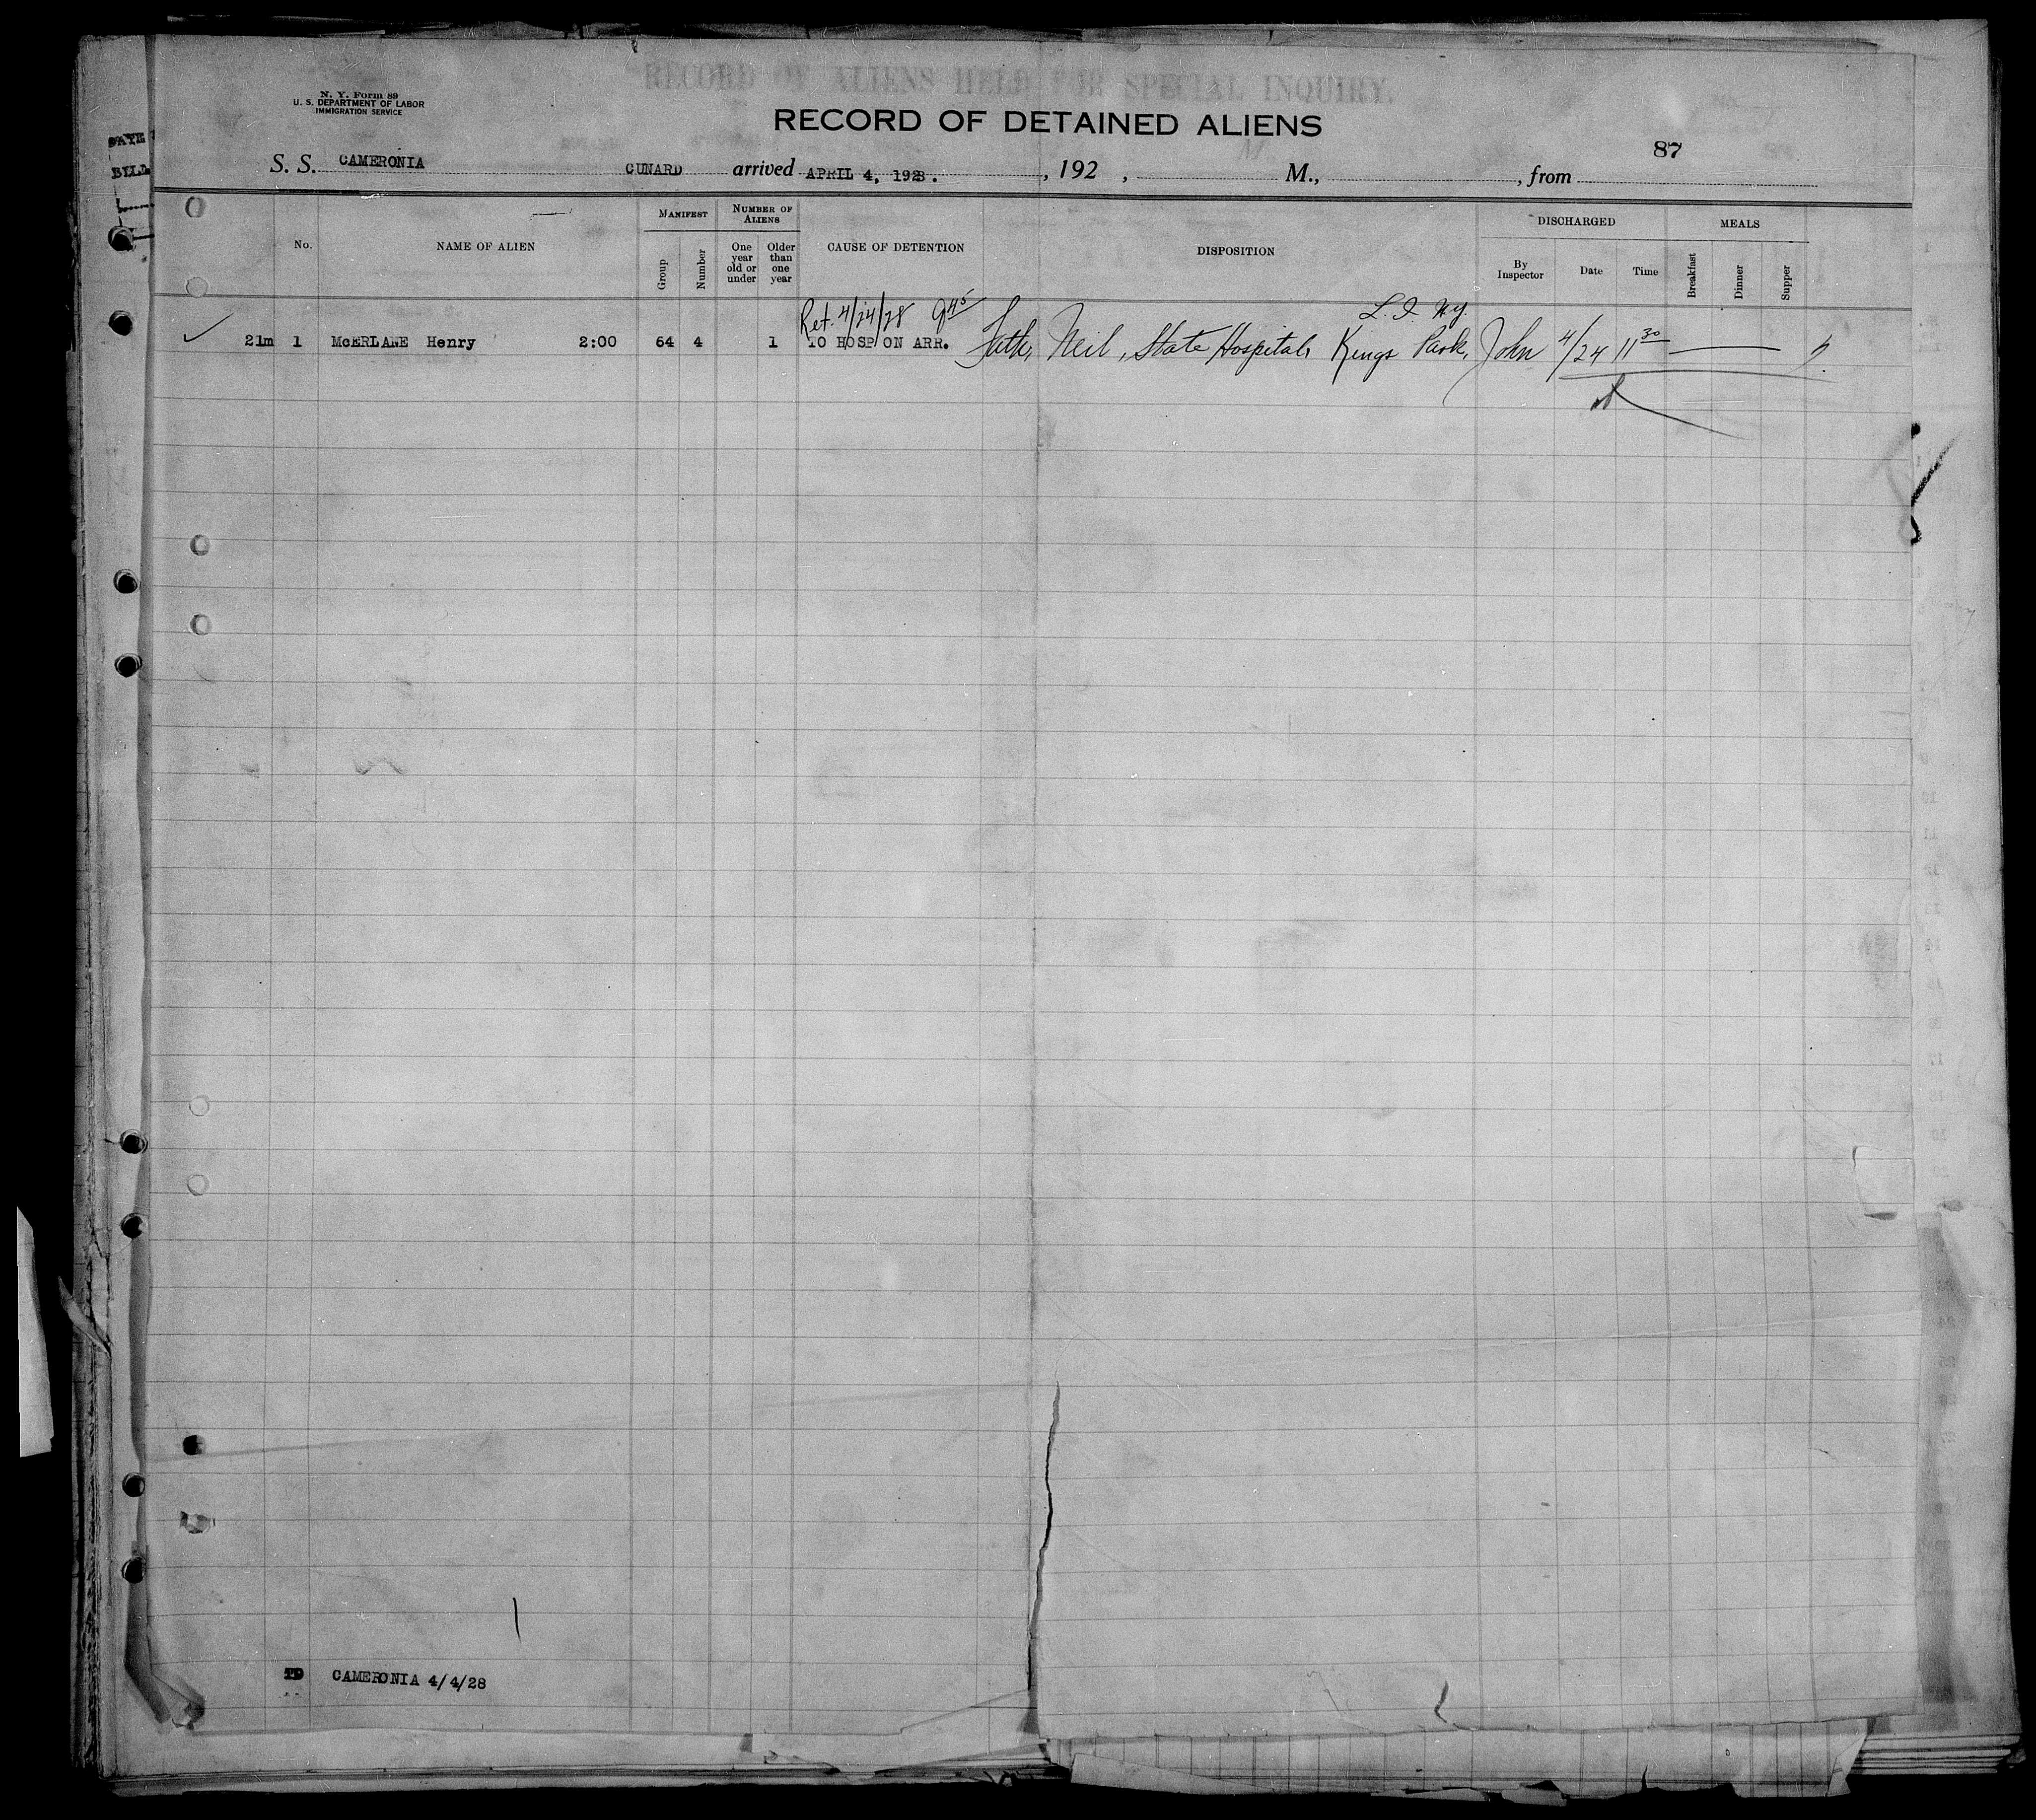 RECORD OF ALIENS HELD FOR SPECIAL INQUIRY.
N. Y. Form 89
U. S. DEPARTMENT OF LABOR
IMMIGRATION SERVICE
RECORD OF DETAINED ALIENS
87
S. S. CAMERONIA CUNARD arrived APRIL 4, 1928. , 192 , M., , from
MANIFEST NUMBER OF ALIENS DISCHARGED MEALS
No. NAME OF ALIEN Group Number One year old or under Older than one year CAUSE OF DETENTION DISPOSITION By Inspector Date Time Breakfast Dinner Supper
Ret. 4/24/28 9 45 L. I. N.Y.
21m 1 McERLANE Henry 2:00 64 4 1 TO HOSP ON ARR. Fath, Neil, State Hospital, Kings Park, John 4/24 11 30
TD CAMERONIA 4/4/28